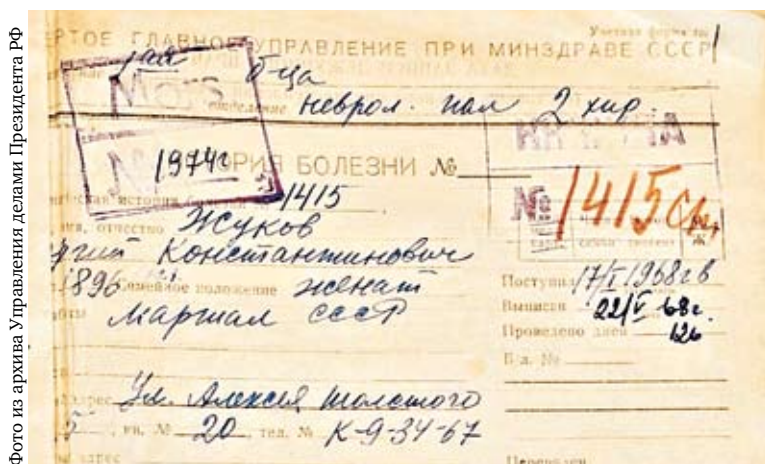 Фото из архива Управления делами Президента РФ
Учетная форма №1
РТОЕ ГЛАВНОЕ УПРАВЛЕНИЕ ПРИ МИНЗДРАВЕ СССР
б-ца
отделение неврол. пал 2 хир.
1974г
РИЯ БОЛЕЗНИ №
№
1415
№ 1415
отчество Жуков
ргий Константинович
1896 Семейное положение женат
Маршал СССР
Поступил 17/I 1968г в
Выписан 22/V 68г.
Проведено дней 126
Б.л. №
адрес Ул. Алексея Толстого
5, кв. № 20, тел. № К-9-34-67
адрес
Переведен